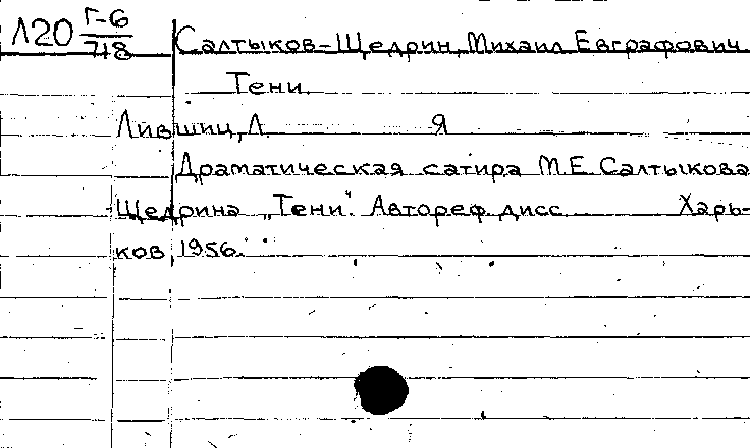 Л20 Г-6/718
Салтыков-Щедрин, Михаил Евграфович
Тени.
Лившиц, Л. Я
Драматическая сатира М.Е. Салтыкова
Щедрина „Тени". Автореф. дисс. Харь-
ков, 1956.